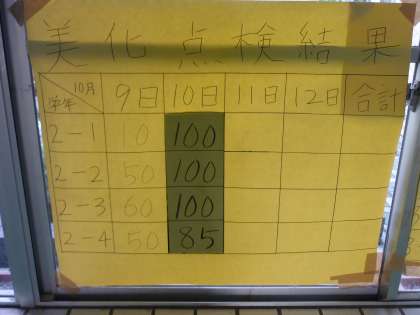 美化点検結果
10月 学年 9日 10日 11日 12日 合計
2-1 10 100
2-2 50 100
2-3 60 100
2-4 50 85